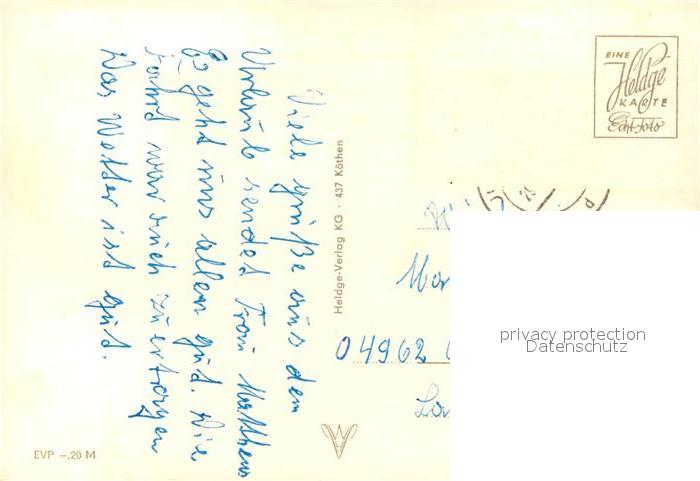 Viele grüße aus dem
Urlaub sendet Frau Matthews
Es geht uns allen gut. Die
Fahrt war auch zuertragen
Das Wetter ist gut.
Heldge-Verlag KG · 437 Köthen
EINE
Heldge
KARTE
Echt Foto
04962
privacy protection
Datenschutz
EVP –,20 M